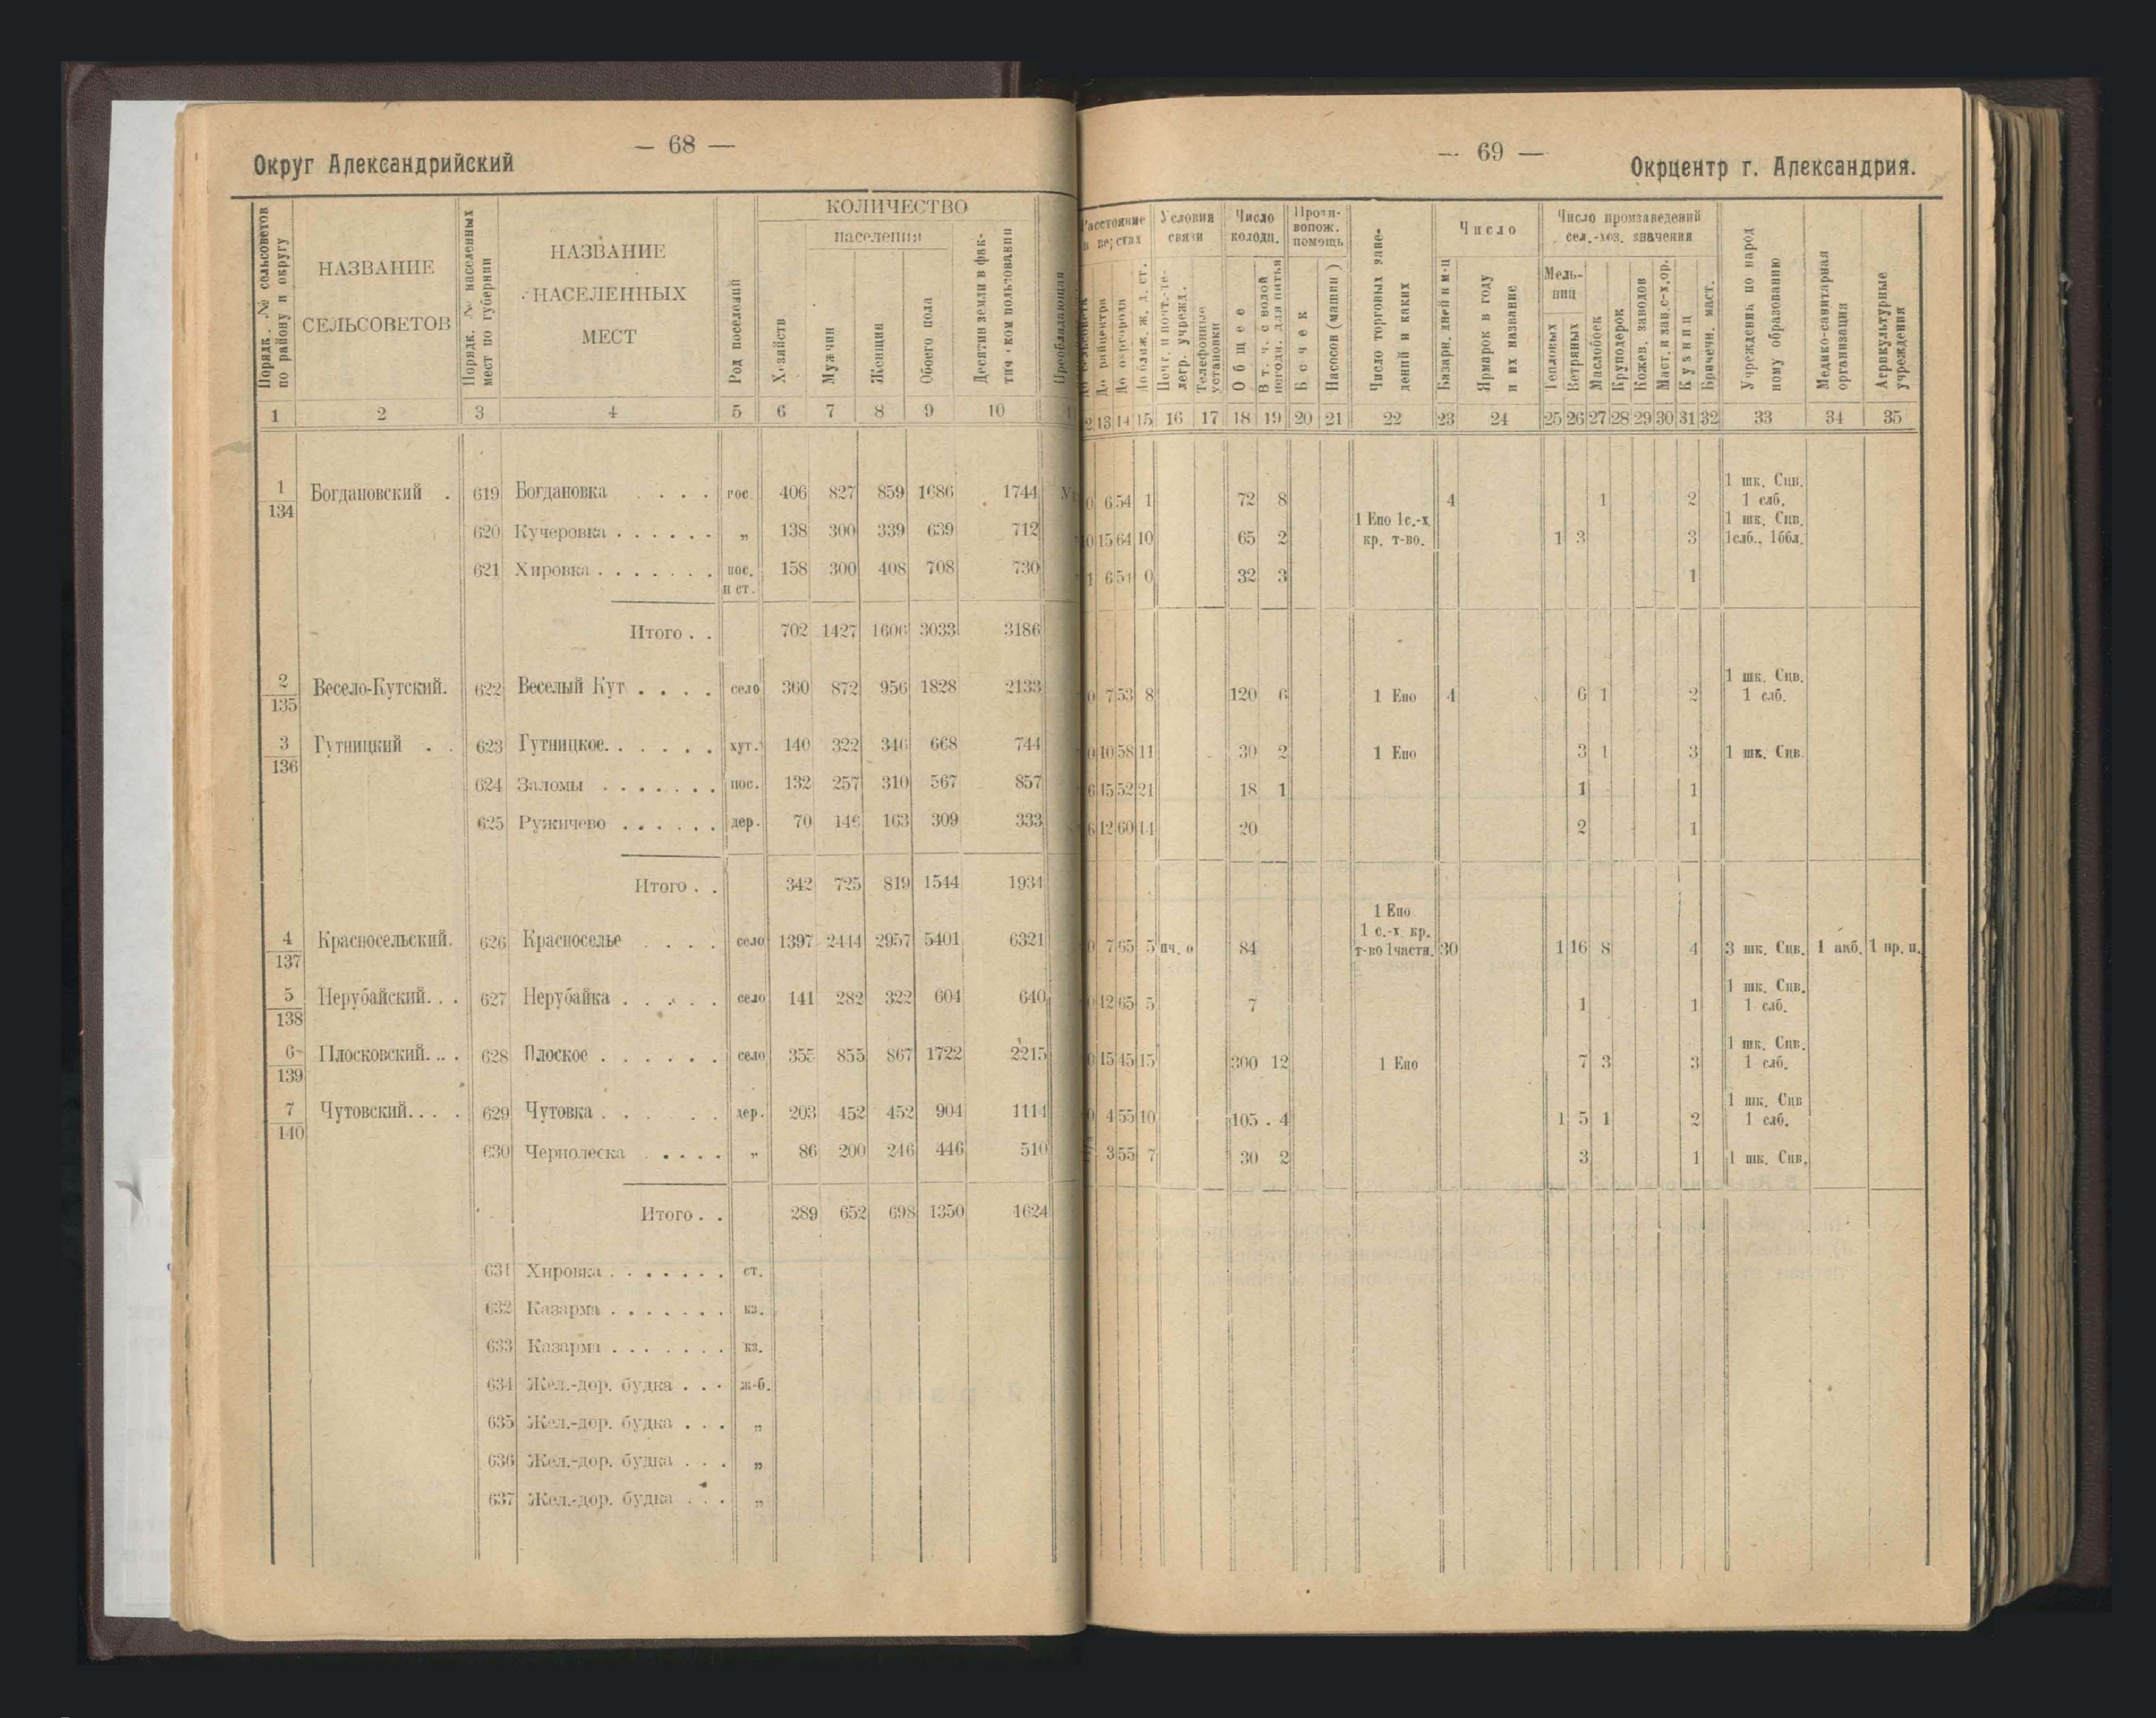 — 68 —
Округ Александрийский
Порядк. №№ сельсоветов по району и округу
НАЗВАНИЕ СЕЛЬСОВЕТОВ
Порядк. № населенных мест по губернии
НАЗВАНИЕ НАСЕЛЕННЫХ МЕСТ
Род поселений
КОЛИЧЕСТВО
населения
Хозяйств
Мужчин
Женщин
Обоего пола
Десятин земли в фак- тич ском пользовании
Преобладающая
1 2 3 4 5 6 7 8 9 10
1/134 Богдановский . 619 Богдановка . . . . пос. 406 827 859 1686 1744
620 Кучеровка . . . . . . „ 138 300 339 639 712
621 Хировка . . . . . . . пос. и ст. 158 300 408 708 730
Итого . . 702 1427 1606 3033 3186
2/135 Весело-Кутский. 622 Веселый Кут . . . . село 360 872 956 1828 2133
3/136 Гутницкий . . 623 Гутницкое. . . . . . хут. 140 322 346 668 744
624 Заломы . . . . . . . пос. 132 257 310 567 857
625 Ружичево . . . . . . дер. 70 146 163 309 333
Итого . . 342 725 819 1544 1934
4/137 Красносельский. 626 Красноселье . . . . село 1397 2444 2957 5401 6321
5/138 Нерубайский. . . 627 Нерубайка . . . . . село 141 282 322 604 640
6/139 Плосковский. . . 628 Плоское . . . . . . село 355 855 867 1722 2215
7/140 Чутовский. . . . 629 Чутовка . . . . . . дер. 203 452 452 904 1114
630 Чернолеска . . . . „ 86 200 246 446 510
Итого . . 289 652 698 1350 1624
631 Хировка . . . . . . . ст.
632 Казарма . . . . . . . кз.
633 Казарма . . . . . . . кз.
634 Жел.-дор. будка . . . ж-б.
635 Жел.-дор. будка . . . „
636 Жел.-дор. будка . . . „
637 Жел.-дор. будка . . . „
— 69 —
Окрцентр г. Александрия.
Расстояние в верстах
До райцентра
До окргорода
До ближ. ж. д. ст.
Условия связи
Почт. и почт.-те- легр. учрежд.
Телефонные установки
Число колодц.
Общее
В т. ч. с водой негодн. для питья
Проти- вопож. помощь
Бочек
Насосов (машин)
Число торговых заве- дений и каких
Число
Базарн. дней в м-ц
Ярмарок в году и их название
Число произаведений сел.-хоз. значения
Мель- ниц
Тепловых
Ветряных
Маслобоек
Крупорерок
Кожев. заводов
Маст. и зав. с-х. ор.
Кузниц
Бричечн. маст.
Учреждения по народ ному образованию
Медико-санитарная организация
Агрикультурные учреждения
13 14 15 16 17 18 19 20 21 22 23 24 25 26 27 28 29 30 31 32 33 34 35
0 6 54 1 72 8 4 1 2 1 шк. Снв. 1 слб.
0 15 64 10 65 2 1 Епо 1с.-х кр. т-во. 1 3 3 1 шк. Снв. 1слб., 1ббл.
1 6 54 0 32 3 1
0 7 53 8 120 6 1 Епо 4 6 1 2 1 шк. Снв. 1 слб.
0 10 58 11 30 2 1 Епо 3 1 3 1 шк. Снв.
6 15 52 21 18 1 1 1
6 12 60 14 20 2 1
0 7 65 5 пч. о 84 1 Епо 1 с.-х кр. т-во 1частн. 30 1 16 8 4 3 шк. Снв. 1 амб. 1 пр. п.
0 12 65 5 7 1 1 1 шк. Снв. 1 слб.
0 15 45 15 300 12 1 Епо 7 3 3 1 шк. Снв. 1 слб.
0 4 55 10 105 . 4 1 5 1 2 1 шк. Снв 1 слб.
3 55 7 30 2 3 1 1 шк. Снв.